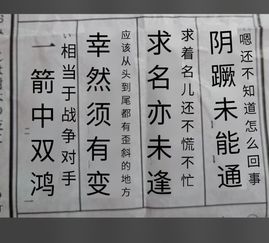 嗯还不知道怎么回事
阴蹶未能通
求着名儿还不慌不忙
求名亦未逢
应该从头到尾都有歪斜的地方
幸然须有变
相当于战争对手
一箭中双鸿